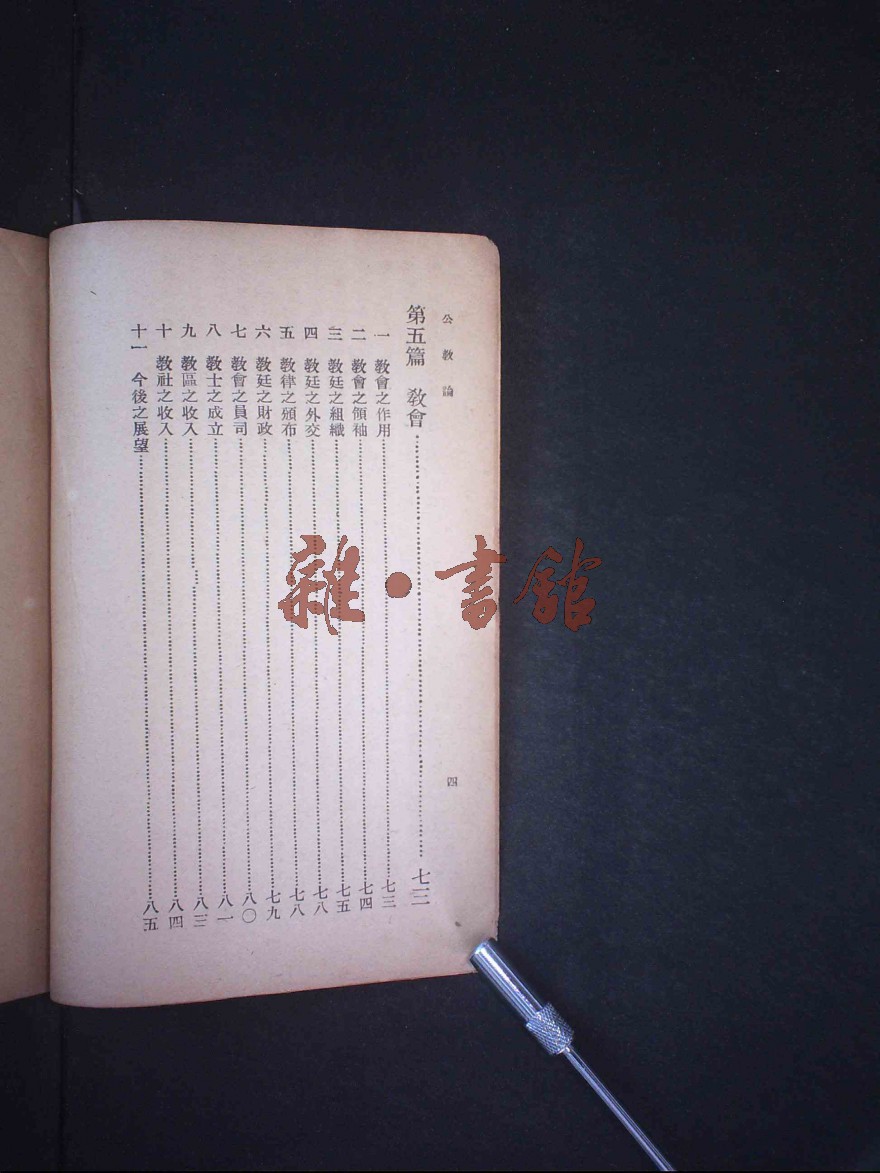 公教論
四
第五篇　教會……七三
一　教會之作用……七三
二　教會之領袖……七四
三　教廷之組織……七五
四　教廷之外交……七八
五　教律之頒布……七八
六　教廷之財政……七九
七　教會之員司……八〇
八　教士之成立……八一
九　教區之收入……八三
十　教社之收入……八四
十一　今後之展望……八五
雜·書館